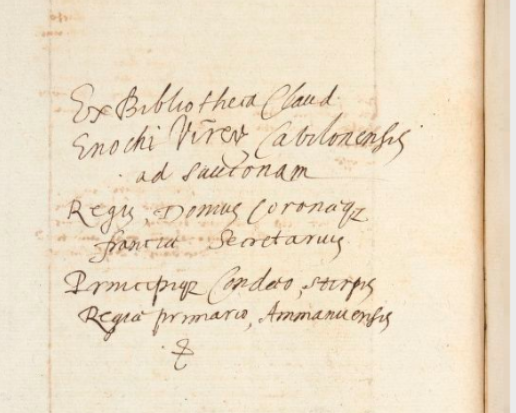 Ex Bibliotheca Claud
Enochi Virey, Cabilonensis
ad sauconam
Regis, Domus Coronæqꝫ
franciæ Secretarius
Principiqꝫ Condæo, stirpis
Regiæ primario, Ammanuensis